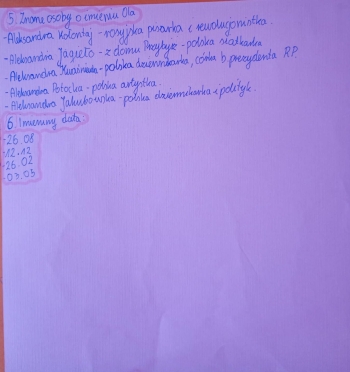 5. Znane osoby o imieniu Ola
- Aleksandra Kołontaj - rosyjska pisarka i rewolucjonistka.
- Aleksandra Jagieło - z domu Przybysz - polska siatkarka
- Aleksandra Kwaśniewska - polska dziennikarka, córka b prezydenta RP.
- Aleksandra Potocka - polska artystka.
- Aleksandra Jakubowska - polska dziennikarka i polityk.
6. Imieniny data:
- 26.08
- 12.12
- 26.02